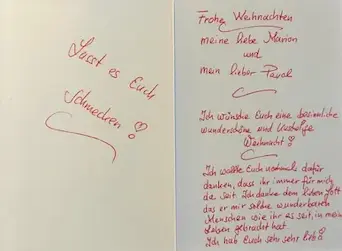 Lasst es Euch
schmecken!
Frohen Weihnachten
meine liebe Marion
und
mein lieber Pavel
Ich wünsche Euch eine besinnliche
wunderschöne und
Weihnacht!
Ich wollte Euch nochmals dafür
danken, dass ihr immer für mich
da seit. Ich danke dem lieben Gott
das er mir solche wunderbaren
Menschen wie ihr es seit, in mein
Leben gebracht hat.
Ich hab Euch sehr sehr lieb!